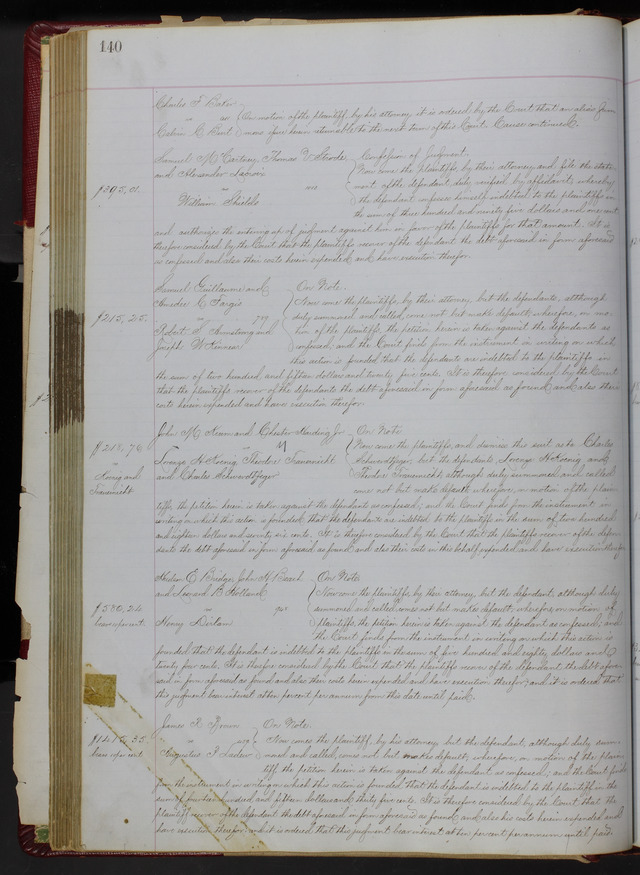 140
Charles F. Baker
vs On motion of the plaintiff, by his attorney it is ordered by the Court that an alias Sum
Calvin C. Burt mons issue herein returnable to the next term of this Court. Cause continued.
Samuel McCartney, Thomas Confession of Judgment.
and Alexander Now come the plaintiffs, by their attorney and file the state
$395.01. vs ment of the defendant duly verified by affidavit, whereby
William Shields the defendant confesses himself indebted to the plaintiffs in
the sum of three hundred and ninety five dollars and one cent
and authorizes the entering up of judgment against him in favor of the plaintiffs for that amount. It is
therefore considered by the Court that the plaintiffs recover of the defendant the debt aforesaid in form aforesaid
so confessed and also their costs herein expended and have execution therefor.
Samuel Guillaume and On Note.
Amedee C. Fargis Now come the plaintiffs, by their attorney but the defendants, although
$215.25. vs 799 duly summoned and called, come not but make default; wherefore, on mo-
Robert S. Armstrong and tion of the plaintiffs, the petition herein is taken against the defendants as
Joseph W. Kinnear confessed, and the Court finds from the instrument in writing on which
this action is founded that the defendants are indebted to the plaintiffs in
the sum of two hundred and fifteen dollars and twenty five cents. It is therefore considered by the Court
that the plaintiffs recover of the defendants the debt aforesaid in form aforesaid as found and also their
costs herein expended and have execution therefor.
John M. Krum and Chester Harding Jr On Note
$218.76 vs Now come the plaintiffs, and dismiss this suit as to Charles
vs Lorenzo H. Koenig, Theodore Trauernicht Schwerdtfeger, but the defendants, Lorenzo H. Koenig and
Koenig and and Charles Schwerdtfeger Theodore Trauernicht, although duly summoned and called
Trauernicht come not but make default; wherefore, on motion of the plain-
tiffs, the petition herein is taken against the defendants as confessed; and the Court finds from the instrument in
writing on which this action is founded, that the defendants are indebted to the plaintiffs in the sum of two hundred
and eighteen dollars and seventy six cents. It is therefore considered by the Court that the plaintiffs recover of the defen-
dants the debt aforesaid in form aforesaid as found; and also their costs in this behalf expended and have execution therefor
Hudson E. Bridge, John H. Beach On Note.
and Leonard B. Holland Now come the plaintiffs, by their attorney, but the defendant, although duly
$580.24. vs summoned and called, comes not but makes default; wherefore, on motion of
bears 10 per cent. Henry plaintiffs, the petition herein is taken against the defendant as confessed; and
the Court finds from the instrument in writing on which this action is
founded that the defendant is indebted to the plaintiffs in the sum of five hundred and eighty dollars and
twenty four cents. It is therefore considered by the Court that the plaintiffs recover of the defendant the debt afore-
said in form aforesaid as found and also their costs herein expended and have execution therefor; and it is ordered that
this judgment bear interest at ten per cent per annum from this date until paid.
James R. On Note.
$1415.35. vs Now comes the plaintiff, by his attorney but the defendant, although duly sum-
bears 10 per cent Augustus F. moned and called, comes not but makes default; wherefore, on motion of the plain-
tiff the petition herein is taken against the defendant as confessed; and the Court finds
from the instrument in writing on which this action is founded that the defendant is indebted to the plaintiff in the
sum of fourteen hundred and fifteen dollars and thirty five cents. It is therefore considered by the Court that the
plaintiff recover of the defendant the debt aforesaid in form aforesaid as found and also his costs herein expended and
have execution therefor and it is ordered that this judgment bear interest at ten per cent per annum until paid.